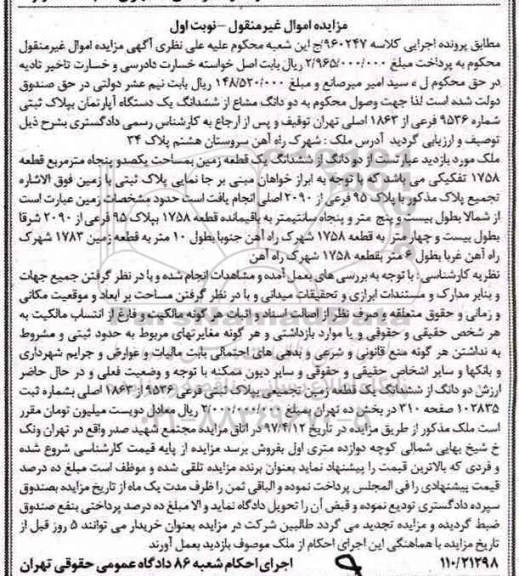 مزایده اموال غیرمنقول - نوبت اول
مطابق پرونده اجرایی کلاسه ۹۶۰۲۴۷/ج این شعبه محکوم علیه علی نظری آگهی مزایده اموال غیرمنقول
محکوم به پرداخت مبلغ ۲/۹۶۵/۰۰۰/۰۰۰ ریال بابت اصل خواسته خسارت دادرسی و خسارت تاخیر تادیه
در حق محکوم ل ه سید امیر میرصانع و مبلغ ۱۴۸/۵۲۰/۰۰۰ ریال بابت نیم عشر دولتی در حق صندوق
دولت شده است لذا جهت وصول محکوم به دو دانگ مشاع از ششدانگ یک دستگاه آپارتمان بپلاک ثبتی
شماره ۹۵۳۶ فرعی از ۱۸۶۳ اصلی تهران توقیف و پس از ارجاع به کارشناس رسمی دادگستری بشرح ذیل
توصیف و ارزیابی گردید آدرس ملک : شهرک راه آهن سروستان هشتم پلاک ۳۴
ملک مورد بازدید عبارتست از دو دانگ از ششدانگ یک قطعه زمین بمساحت یکصدو پنجاه مترمربع قطعه
۱۷۵۸ تفکیکی می باشد که با توجه به ابراز خواهان مبنی بر جا نمایی پلاک ثبتی با زمین فوق الاشاره
تجمیع پلاک مذکور با پلاک ۹۵ فرعی از ۲۰۹۰ اصلی انجام یافت است حدود مشخصات زمین عبارت است
از شمالا بطول بیست و پنج متر و پنجاه سانتیمتر به باقیمانده قطعه ۱۷۵۸ بپلاک ۹۵ فرعی از ۲۰۹۰ شرقا
بطول بیست و چهار متر به قطعه ۱۷۵۸ شهرک راه آهن جنوبا بطول ۱۰ متر به قطعه زمین ۱۷۸۳ شهرک
راه آهن غربا بطول ۶ متر بقطعه ۱۷۵۸ شهرک راه آهن
نظریه کارشناسی : با توجه به بررسی های بعمل آمده و مشاهدات انجام شده و با در نظر گرفتن جمیع جهات
و بنابر مدارک و مستندات ابرازی و تحقیقات میدانی و با در نظر گرفتن مساحت بر ابعاد و موقعیت مکانی
و زمانی و حقوق متعلقه و صرف نظر از اصالت اسناد و اثبات هر گونه مالکیت و فارغ از انتساب مالکیت به
هر شخص حقیقی و حقوقی و یا موارد بازداشتی و هر گونه مغایرتهای مربوط به حدود ثبتی و مشروط
به نداشتن هر گونه منع قانونی و شرعی و بدهی های احتمالی بابت مالیات و عوارض و جرایم شهرداری
و بانکها و سایر اشخاص حقیقی و حقوقی و سایر دیون ممکنه با توجه و وضعیت فعلی و در حال حاضر
ارزش دو دانگ از ششدانگ یک قطعه زمین تجمیعی بپلاک ثبتی فرعی ۹۵۳۶ از ۱۸۶۳ اصلی بشماره ثبت
۱۰۲۸۳۵ صفحه ۳۱۰ در بخش ده تهران بمبلغ ۲/۰۰۰/۰۰۰/۰۰۰ ریال معادل دویست میلیون تومان مقرر
است ملک مذکور از طریق مزایده در تاریخ ۹۷/۴/۱۲ در اتاق مزایده مجتمع شهید صدر واقع در تهران ونک
خ شیخ بهایی شمالی کوچه دوازده متری اول بفروش برسد مزایده از پایه قیمت کارشناسی شروع شده
و فردی که بالاترین قیمت را پیشنهاد نماید بعنوان برنده مزایده تلقی شده و موظف است مبلغ ده درصد
قیمت پیشنهادی را فی المجلس پرداخت نموده و الباقی ثمن را ظرف مدت یک ماه از تاریخ مزایده بصندوق
سپرده دادگستری تودیع نموده و قبض آن را تحویل دادگاه نماید و الا مبلغ ده درصد پرداختی بنفع صندوق
ضبط گردیده و مزایده تجدید می گردد طالبین شرکت در مزایده بعنوان خریدار می توانند ۵ روز قبل از
تاریخ مزایده با هماهنگی این اجرای احکام از ملک موصوف بازدید بعمل آورند
۱۱۰/۲۱۲۹۸ اجرای احکام شعبه ۸۶ دادگاه عمومی حقوقی تهران